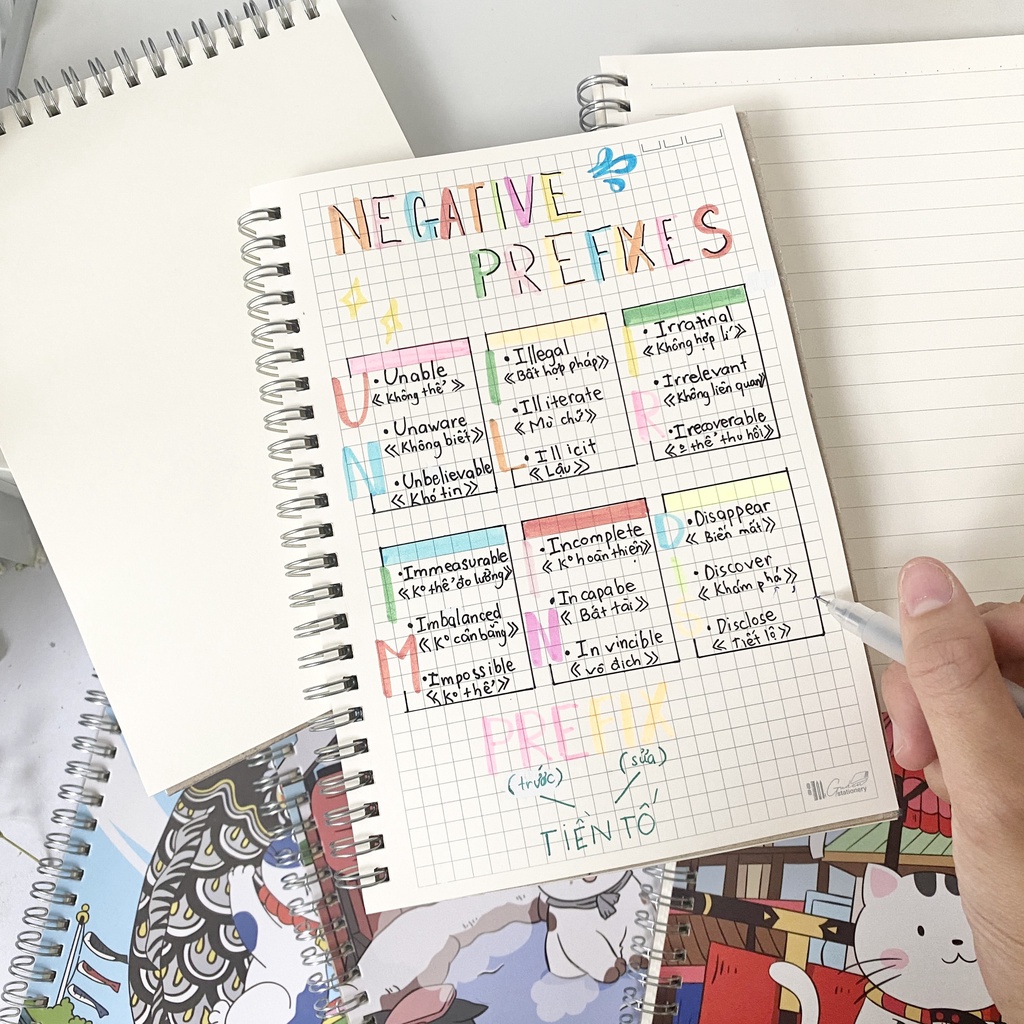 NEGATIVE
PREFIXES
UN
• Unable
« Không thể »
• Unaware
« Không biết »
• Unbelievable
« Khó tin »
IL
• Illegal
« Bất hợp pháp »
• Illiterate
« Mù chữ »
• Illicit
« Lậu »
IR
• Irratinal
« Không hợp lí »
• Irrelevant
« Không liên quan »
• Irecoverable
« o thể thu hồi »
IM
• Immeasurable
« Ko thể đo lường »
• Imbalanced
« Ko cân bằng »
• Impossible
« Ko thể »
IN
• Incomplete
« Ko hoàn thiện »
• Incapabe
« Bất tài »
• Invincible
« Vô địch »
DIS
• Disappear
« Biến mất »
• Discover
« Khám phá »
• Disclose
« Tiết lộ »
PREFIX
(trước) (sửa)
TIỀN TỐ
stationery